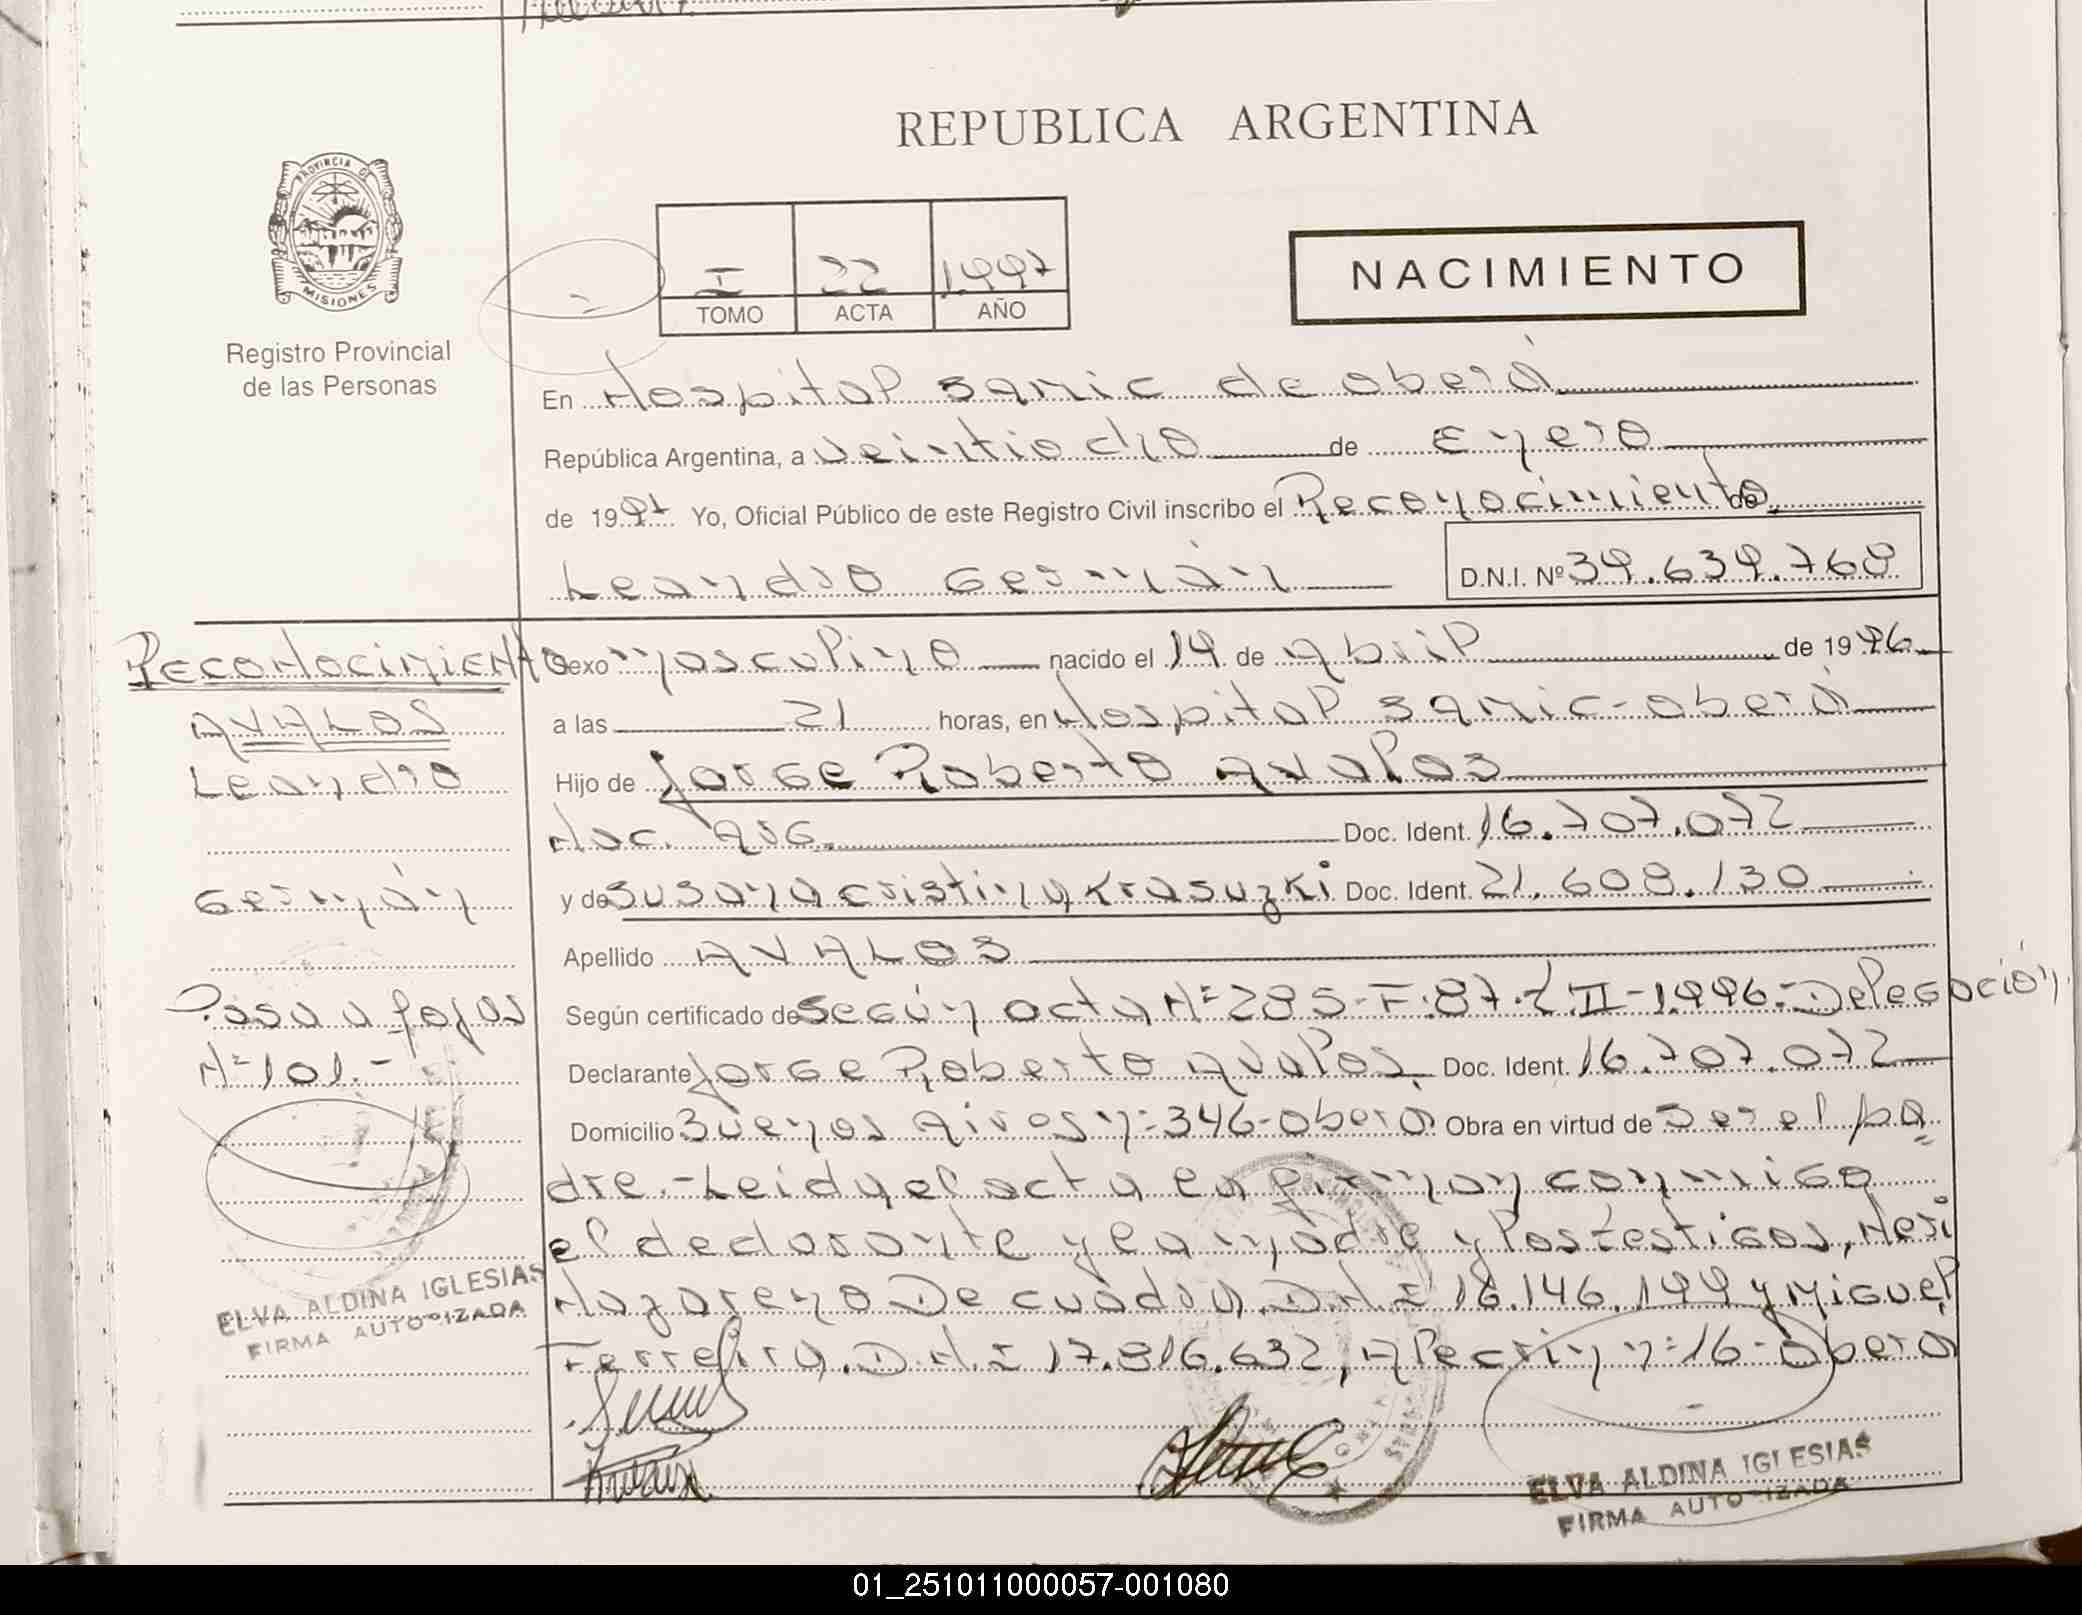 REPUBLICA ARGENTINA
PROVINCIA DE
MISIONES
Registro Provincial
de las Personas
I 22 1997
TOMO ACTA AÑO
NACIMIENTO
En Hospital Samic de Oberá
República Argentina, a Veintiocho de Enero
de 1997 Yo, Oficial Público de este Registro Civil inscribo el Reconocimiento de
Leandro Germán D.N.I. Nº 39.639.768
Reconocimiento
AVALOS
Leandro
Germán
Pasa a fojas
Nº 101.-
ELVA ALDINA IGLESIAS
FIRMA AUTORIZADA
Sexo masculino nacido el 19 de Abril de 1996
a las 21 horas, en Hospital Samic - Oberá
Hijo de Jorge Roberto Avalos
Nac. Arg. Doc. Ident. 16.707.072
y de Susana Cristina Krasuzki Doc. Ident. 21.608.130
Apellido AVALOS
Según certificado de Según acta Nº 285-F:87-T.II-1996.-Delegación
Declarante Jorge Roberto Avalos. Doc. Ident. 16.707.072
Domicilio Buenos Aires nº 346-Oberá Obra en virtud de Ser el pa
dre.-Leida el acta la firman conmigo
el declarante y la madre y los testigos, Neri
Nazareno De cuadra. D.N.I 16.146.199 y Miguel
Ferreira. D.N.I 17.816.632, Alecrin nº 16-Oberá
ELVA ALDINA IGLESIAS
FIRMA AUTORIZADA
01_251011000057-001080